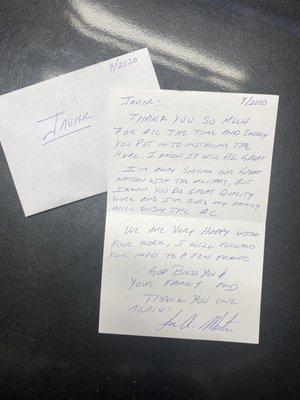 9/2020
JAVIER
JAVIER: 9/2020
THANK YOU SO MUCH
FOR ALL THE TIME AND ENERGY
YOU PUT INTO INSTALLING THE
HVAC, I KNOW IT WILL BE GREAT
I'M AWAY SERVING OUR GREAT
NATION WITH THE MILITARY, BUT
I KNOW YOU DO GREAT QUALITY
WORK AND I'M SURE MY FAMILY
WILL ENJOY THE AC
WE ARE VERY HAPPY WITH
YOUR WORK, I WILL FORWARD
YOUR INFO TO A FEW FRIENDS
GOD BLESS YOU &
YOUR FAMILY AND
THANK YOU ONCE
AGAIN!